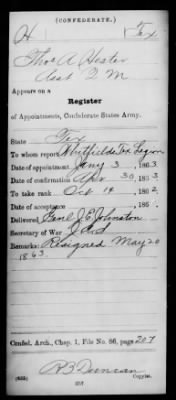 (CONFEDERATE.)
H Tex
Thos A Hester
Asst Q M
Appears on a
Register
of Appointments, Confederate States Army.
State Tex
To whom report Whitfields Tex Legion
Date of appointment Jany 3, 1863
Date of confirmation Apr 30, 1863
To take rank Oct 14, 1862
Date of acceptance , 186
Delivered Genl J. E. Johnston
Secretary of War J. A. S.
Remarks: Resigned May 20
1863.
Confed. Arch., Chap. 1, File No. 86, page 207
R B Duncan
(635) Copyist.